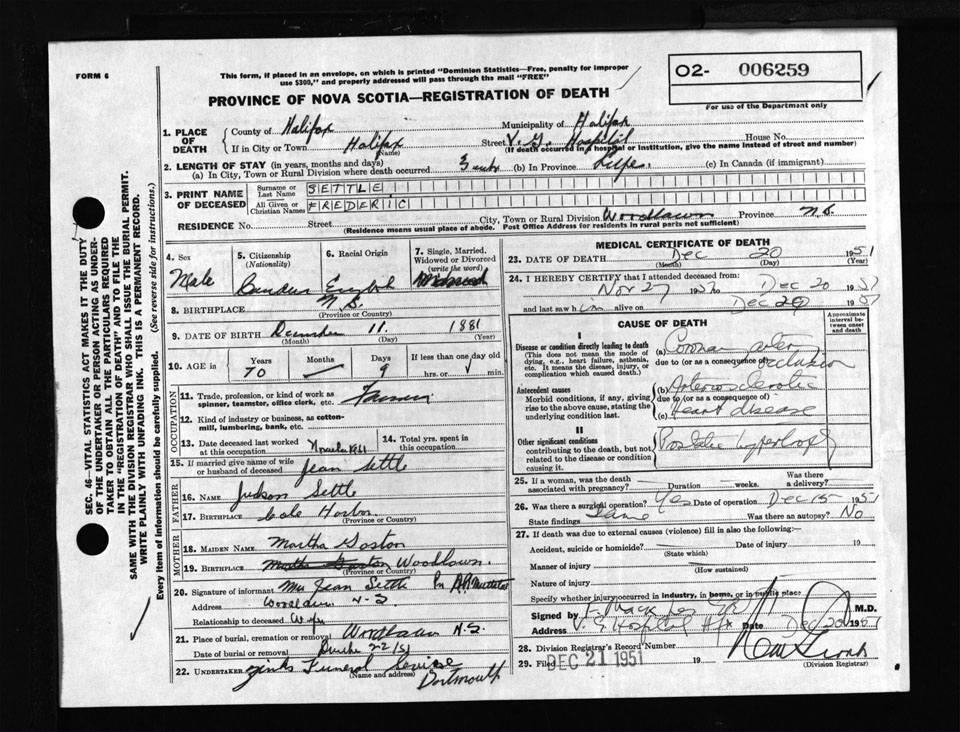 FORM 6
This form, if placed in an envelope, on which is printed "Dominion Statistics—Free, penalty for improper
use $300," and properly addressed will pass through the mail "FREE"
O2- 006259
For use of the Department only
PROVINCE OF NOVA SCOTIA—REGISTRATION OF DEATH
1. PLACE OF DEATH
County of Halifax Municipality of Halifax
If in City or Town Halifax (Name) Street V. G. Hospital House No.
(If death occurred in a hospital or institution, give the name instead of street and number)
2. LENGTH OF STAY (in years, months and days)
(a) In City, Town or Rural Division where death occurred 3 (b) In Province Life. (c) In Canada (if immigrant)
3. PRINT NAME OF DECEASED
Surname or Last Name SETTLE
All Given or Christian Names FREDERIC
RESIDENCE No. Street City, Town or Rural Division Woodlawn Province N.S.
(Residence means usual place of abode. Post Office Address for residents in rural parts not sufficient)
SEC. 46—VITAL STATISTICS ACT MAKES IT THE DUTY
OF THE UNDERTAKER OR PERSON ACTING AS UNDER-
TAKER TO OBTAIN ALL THE PARTICULARS REQUIRED
IN THE "REGISTRATION OF DEATH" AND TO FILE THE
SAME WITH THE DIVISION REGISTRAR WHO SHALL ISSUE THE BURIAL PERMIT.
WRITE PLAINLY WITH UNFADING INK. THIS IS A PERMANENT RECORD.
Every item of information should be carefully supplied. (See reverse side for instructions.)
4. Sex Male
5. Citizenship (Nationality)
6. Racial Origin
7. Single, Married, Widowed or Divorced (write the word)
8. BIRTHPLACE N.S.
(Province or Country)
9. DATE OF BIRTH December 11. 1881
(Month) (Day) (Year)
10. AGE in Years 70 Months Days 9 If less than one day old hrs. or min.
OCCUPATION
11. Trade, profession, or kind of work as spinner, teamster, office clerk, etc. Farmer
12. Kind of industry or business, as cotton-mill, lumbering, bank, etc.
13. Date deceased last worked at this occupation
14. Total yrs. spent in this occupation
15. If married give name of wife or husband of deceased Jean Settle
FATHER
16. NAME Judson Settle
17. BIRTHPLACE Cole Harbor
(Province or Country)
MOTHER
18. MAIDEN NAME Martha Gaston
19. BIRTHPLACE Martha Gaston Woodlawn.
(Province or Country)
20. Signature of informant Mrs Jean Settle
Address Woodlawn N-S
Relationship to deceased Wife
21. Place of burial, cremation or removal Woodlawn N.S.
Date of burial or removal 22/51
22. UNDERTAKER Zinks Funeral Service
(Name and address) Dartmouth
MEDICAL CERTIFICATE OF DEATH
23. DATE OF DEATH Dec 20 1951
(Month) (Day) (Year)
24. I HEREBY CERTIFY that I attended deceased from:
Nov 27 1951 to Dec 20 1951
and last saw him alive on Dec 20 1951
CAUSE OF DEATH
Approximate interval between onset and death
I
Disease or condition directly leading to death
(This does not mean the mode of dying, e.g., heart failure, asthenia, etc. It means the disease, injury, or complication which caused death.)
(a) Coronary artery
due to (or as a consequence of) occlusion
Antecedent causes
Morbid conditions, if any, giving rise to the above cause, stating the underlying condition last.
(b) Arteriosclerotic
due to (or as a consequence of)
(c) Heart disease
II
Other significant conditions
contributing to the death, but not related to the disease or condition causing it.
Prostatic hypertrophy
25. If a woman, was the death associated with pregnancy? Duration weeks. Was there a delivery?
26. Was there a surgical operation? Yes Date of operation Dec 15 1951
State findings Same Was there an autopsy? No
27. If death was due to external causes (violence) fill in also the following:—
Accident, suicide or homicide? Date of injury 19
(State which)
Manner of injury
(How sustained)
Nature of injury
Specify whether injury occurred in industry, in home, or in public place
Signed by M.D.
Address V. G Hospital Hfx Date Dec 20 1951
28. Division Registrar's Record Number
29. Filed DEC 21 1951 19
(Division Registrar)